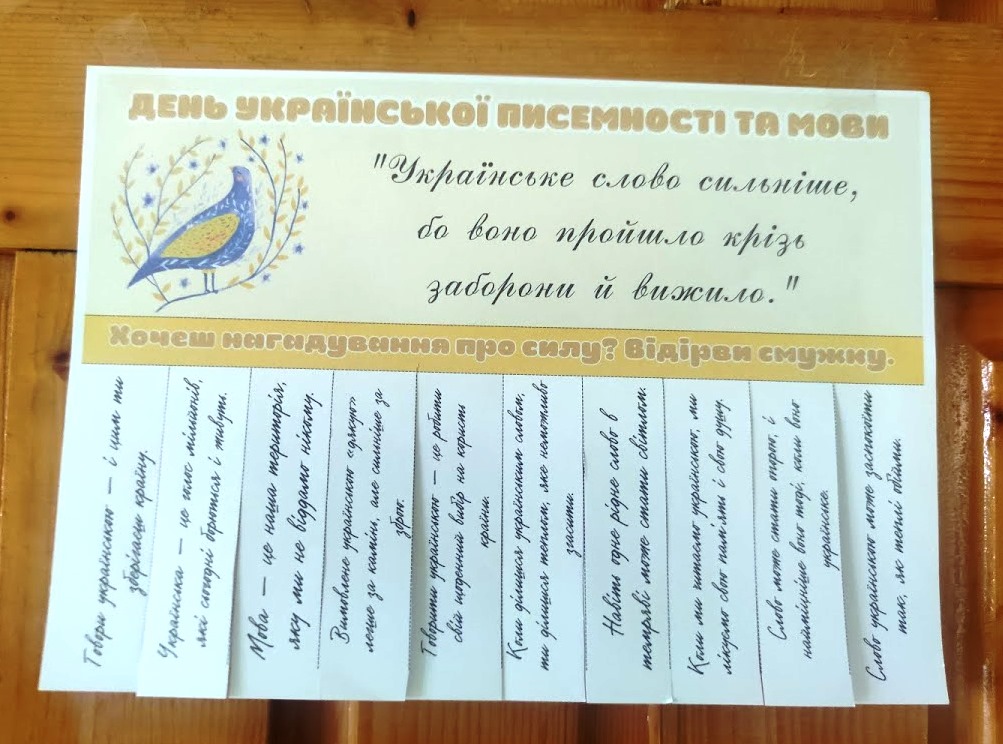 ДЕНЬ УКРАЇНСЬКОЇ ПИСЕМНОСТІ ТА МОВИ
"Українське слово сильніше,
бо воно пройшло крізь
заборони й вижило."
Хочеш нагадування про силу? Відірви смужку.
Говори українською — і цим ти
збережеш країну.
Українська — це голос мільйонів,
які сьогодні боряться і живуть.
Мова — це наша територія,
яку ми не віддамо нікому.
Вимовлене українською «дякую»
легше за камінь, але сильніше за
зброю.
Говорити українською — це робити
свій щоденний вибір на користь
країни.
Коли ділишся українським словом,
ти ділишся теплом, яке неможливо
згасити.
Навіть одне рідне слово в
темряві може стати світлом.
Коли ми читаємо українською, ми
лікуємо свою пам'ять і свою душу.
Слово може стати зброєю, і
найміцніше воно тоді, коли воно
українське.
Слово українською може заспокоїти
так, як теплі обійми.